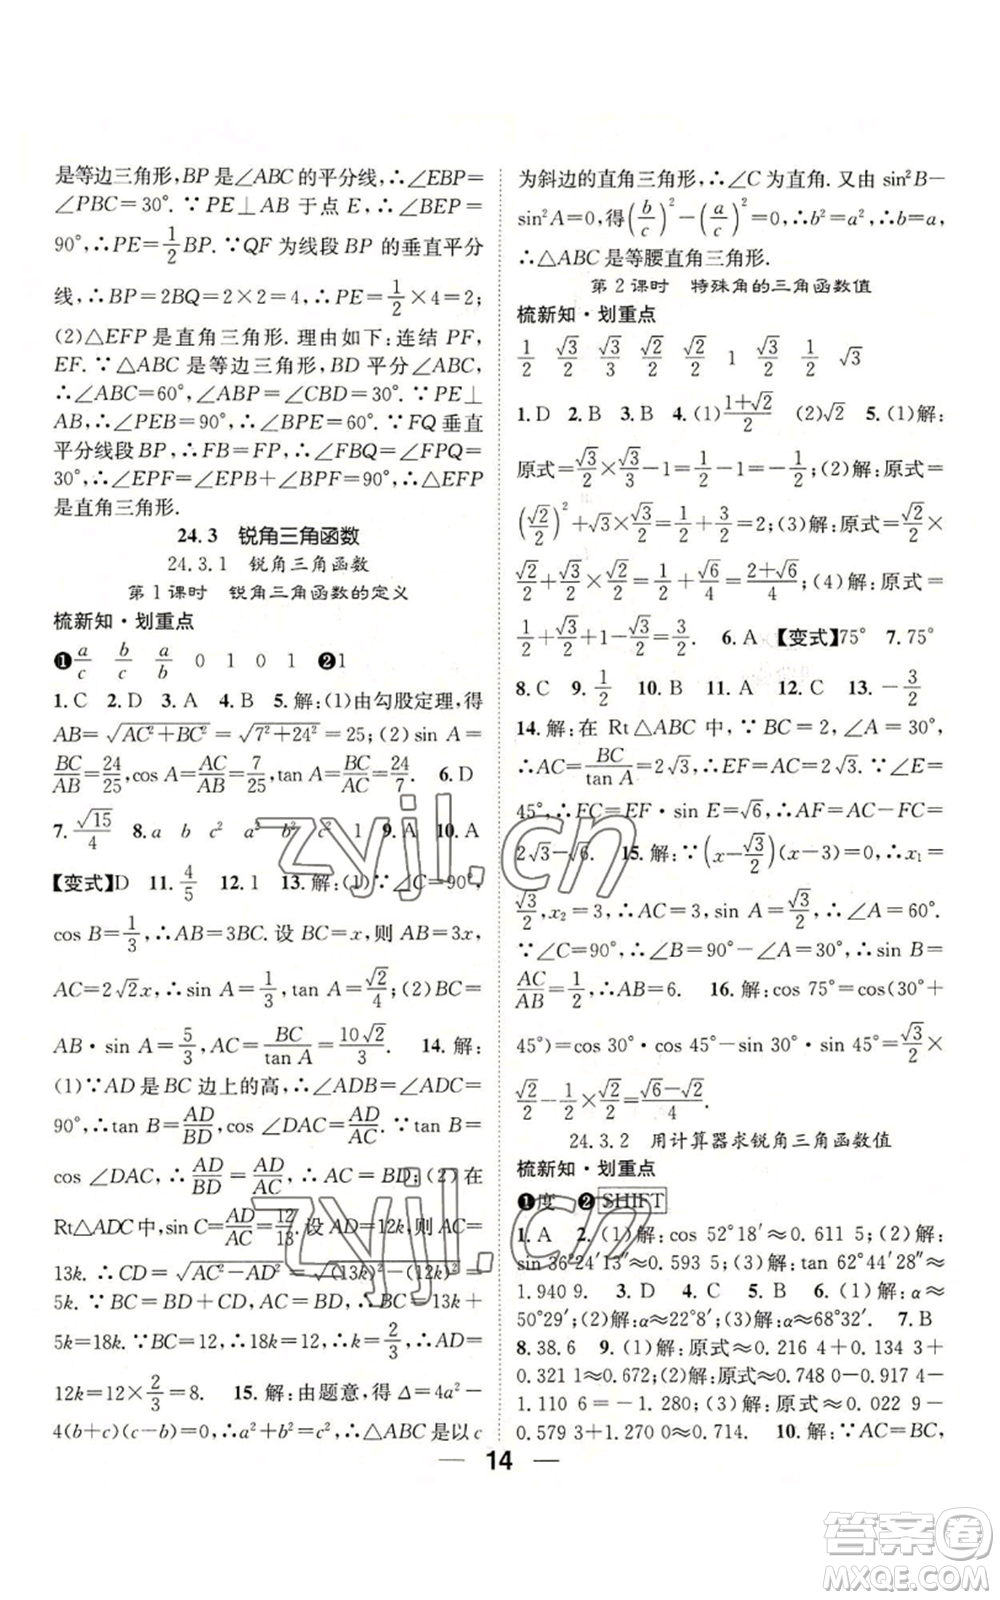 是等边三角形,BP是∠ABC的平分线,∴∠EBP=
∠PBC=30°. ∵PE⊥AB 于点 E,∴∠BEP=
90°,∴PE=1/2BP. ∵QF 为线段 BP 的垂直平分
线,∴BP=2BQ=2×2=4,∴PE=1/2×4=2;
(2)△EFP是直角三角形. 理由如下:连结 PF,
EF. ∵△ABC 是等边三角形,BD 平分∠ABC,
∴∠ABC=60°,∠ABP=∠CBD=30°. ∵PE⊥
AB,∴∠BEP=90°,∴∠BPE=60°. ∵FQ垂直
平分线段BP,∴FB=FP,∴∠FBQ=∠FPQ=
30°,∴∠EPF=∠EPB+∠BPF=90°,∴△EFP
是直角三角形.
24.3 锐角三角函数
24.3.1 锐角三角函数
第1课时 锐角三角函数的定义
梳新知·划重点
❶a/c b/c a/b 0 1 0 1 ❷1
1.C 2.D 3.A 4.B 5.解:(1)由勾股定理,得
AB=√(AC²+BC²)=√(7²+24²)=25;(2)sin A=
BC/AB=24/25,cos A=AC/AB=7/25,tan A=BC/AC=24/7. 6.D
7.√15/4 8.a b c² a² b² c² 1 9.A 10.A
【变式】D 11.4/5 12.1 13.解:(1)∵∠C=90°,
cos B=1/3,∴AB=3BC. 设 BC=x,则 AB=3x,
AC=2√2x,∴sin A=1/3,tan A=√2/4;(2)BC=
AB·sin A=5/3,AC=BC/tan A=10√2/3. 14.解:
(1)∵AD 是 BC 边上的高,∴∠ADB=∠ADC=
90°,∴tan B=AD/BD,cos ∠DAC=AD/AC. ∵tan B=
cos ∠DAC,∴AD/BD=AD/AC,∴AC=BD;(2)在
Rt△ADC中,sin C=AD/AC=12/13. 设 AD=12k,则 AC=
13k. ∴CD=√(AC²-AD²)=√((13k)²-(12k)²)=
5k. ∵BC=BD+CD=AC+CD,∴BC=13k+
5k=18k. ∵BC=12,∴18k=12,∴k=2/3,∴AD=
12k=12×2/3=8. 15.解:由题意,得 Δ=4a²-
4(b+c)(c-b)=0,∴a²+b²=c²,∴△ABC是以c
为斜边的直角三角形,∴∠C为直角. 又由 sin²B-
sin²A=0,得(b/c)²-(a/c)²=0,∴b²=a²,∴b=a,
∴△ABC是等腰直角三角形.
第2课时 特殊角的三角函数值
梳新知·划重点
1/2 √3/2 √3/3 √2/2 √2/2 1 √3/2 1/2 √3
1.D 2.B 3.B 4.(1)(1+√2)/2 (2)√2 5.(1)解:
原式=√3/2×√3/3-1=1/2-1=-1/2;(2)解:原式=
(√2/2)²+√3×√3/2=1/2+3/2=2;(3)解:原式=√2/2×
√2/2+√2/2×√3/2=1/2+√6/4=(2+√6)/4;(4)解:原式=
1/2+√3/2×√3-1/2=3/2. 6.A 【变式】75° 7.75°
8.C 9.1/2 10.B 11.A 12.C 13.-3/2
14.解:在 Rt△ABC 中,∵BC=2,∠A=30°,
∴AC=BC/tan A=2√3,∴EF=AC=2√3. ∵∠E=
45°,∴FC=EF·sin E=√6,∴AF=AC-FC=
2√3-√6. 15.解:∵(x-√3/2)(x-3)=0,∴x₁=
√3/2,x₂=3,∴AC=3,sin A=√3/2,∴∠A=60°.
∵∠C=90°,∴∠B=90°-∠A=30°,∴sin B=
AC/AB=1/2,∴AB=6. 16.解:cos 75°=cos(30°+
45°)=cos 30°·cos 45°-sin 30°·sin 45°=√3/2×
√2/2-1/2×√2/2=(√6-√2)/4.
24.3.2 用计算器求锐角三角函数值
梳新知·划重点
❶度 ❷SHIFT
1.A 2.(1)解:cos 52°18′≈0.611 5;(2)解:
sin 36°24′13″≈0.593 5;(3)解:tan 62°44′28″≈
1.940 9. 3.D 4.C 5.B 6.(1)解:α≈
50°29′;(2)解:α≈26°48′;(3)解:α≈68°32′. 7.B
8.38.6 9.(1)解:原式≈0.216 4+0.130 5+
0.323 1≈0.670;(2)解:原式≈0.748 0-0.917 4-
1.110 6=-1.280;(3)解:原式≈0.022 9-
0.579 3+1.270 0≈0.714. 10.解:∵AC=BC,
14
zyjl.cn
zyjl.cn
答案圈
MXQE.COM